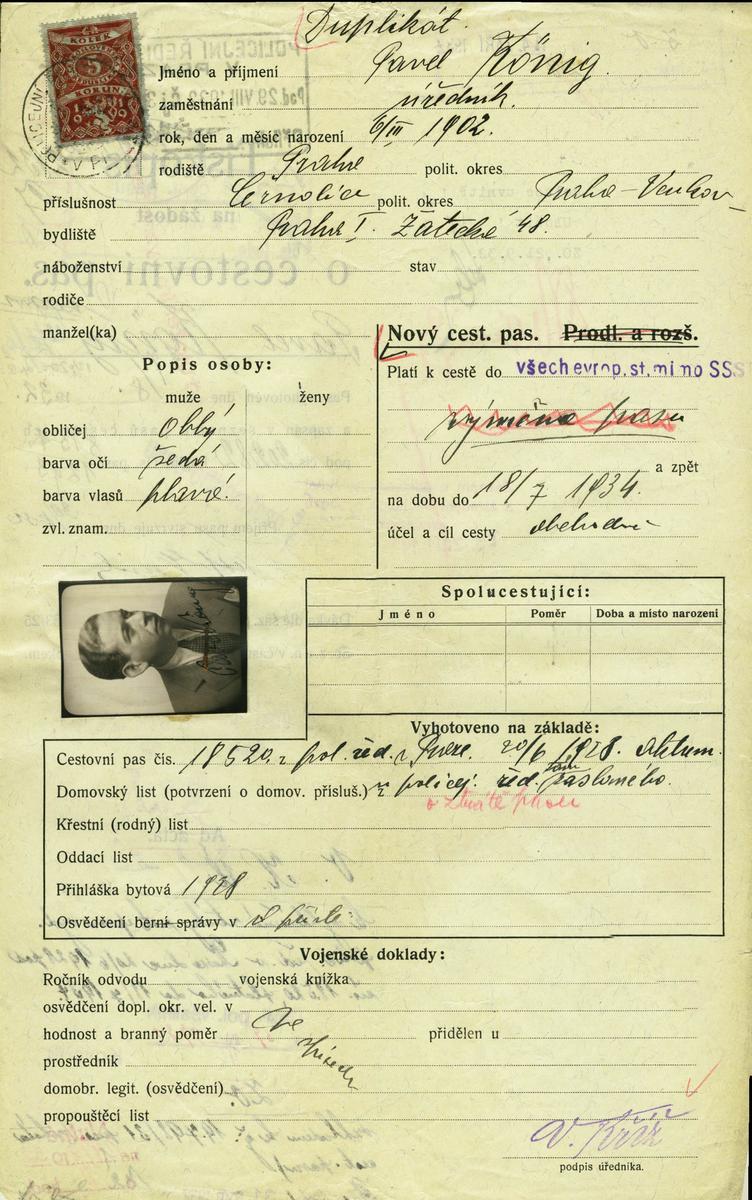 Duplikát.
KOLEK
5
KORUN
Jméno a příjmení Pavel König.
zaměstnání úředník.
rok, den a měsíc narození 6/III 1902.
rodiště Praha polit. okres
příslušnost Černolice polit. okres Praha-Venkov
bydliště Praha I. Žatecká 48.
náboženství stav
rodiče
manžel(ka)
Nový cest. pas. Prodl. a rozš.
Popis osoby:
Platí k cestě do všech evrop. st. mimo SSS
muže ženy
výměna pasu
obličej oblý
barva očí šedá
a zpět
barva vlasů plavé.
na dobu do 18/7 1934.
zvl. znam.
účel a cíl cesty obchodní
Spolucestující:
Jméno Poměr Doba a místo narození
Vyhotoveno na základě:
Cestovní pas čís. 18520 z pol. řed. v Praze 20/6 1928.
Domovský list (potvrzení o domov. přísluš.) policej. řed.
o ztrátě pasu
Křestní (rodný) list
Oddací list
Přihláška bytová 1928
Osvědčení berní správy v
Vojenské doklady:
Ročník odvodu vojenská knížka
osvědčení dopl. okr. vel. v
hodnost a branný poměr přidělen u
prostředník
domobr. legit. (osvědčení)
propouštěcí list
V. Kříž
podpis úředníka.